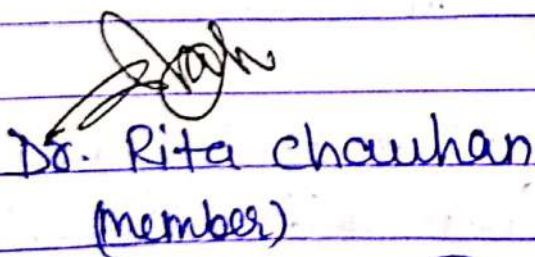 Dr. Rita chauhan
(member)